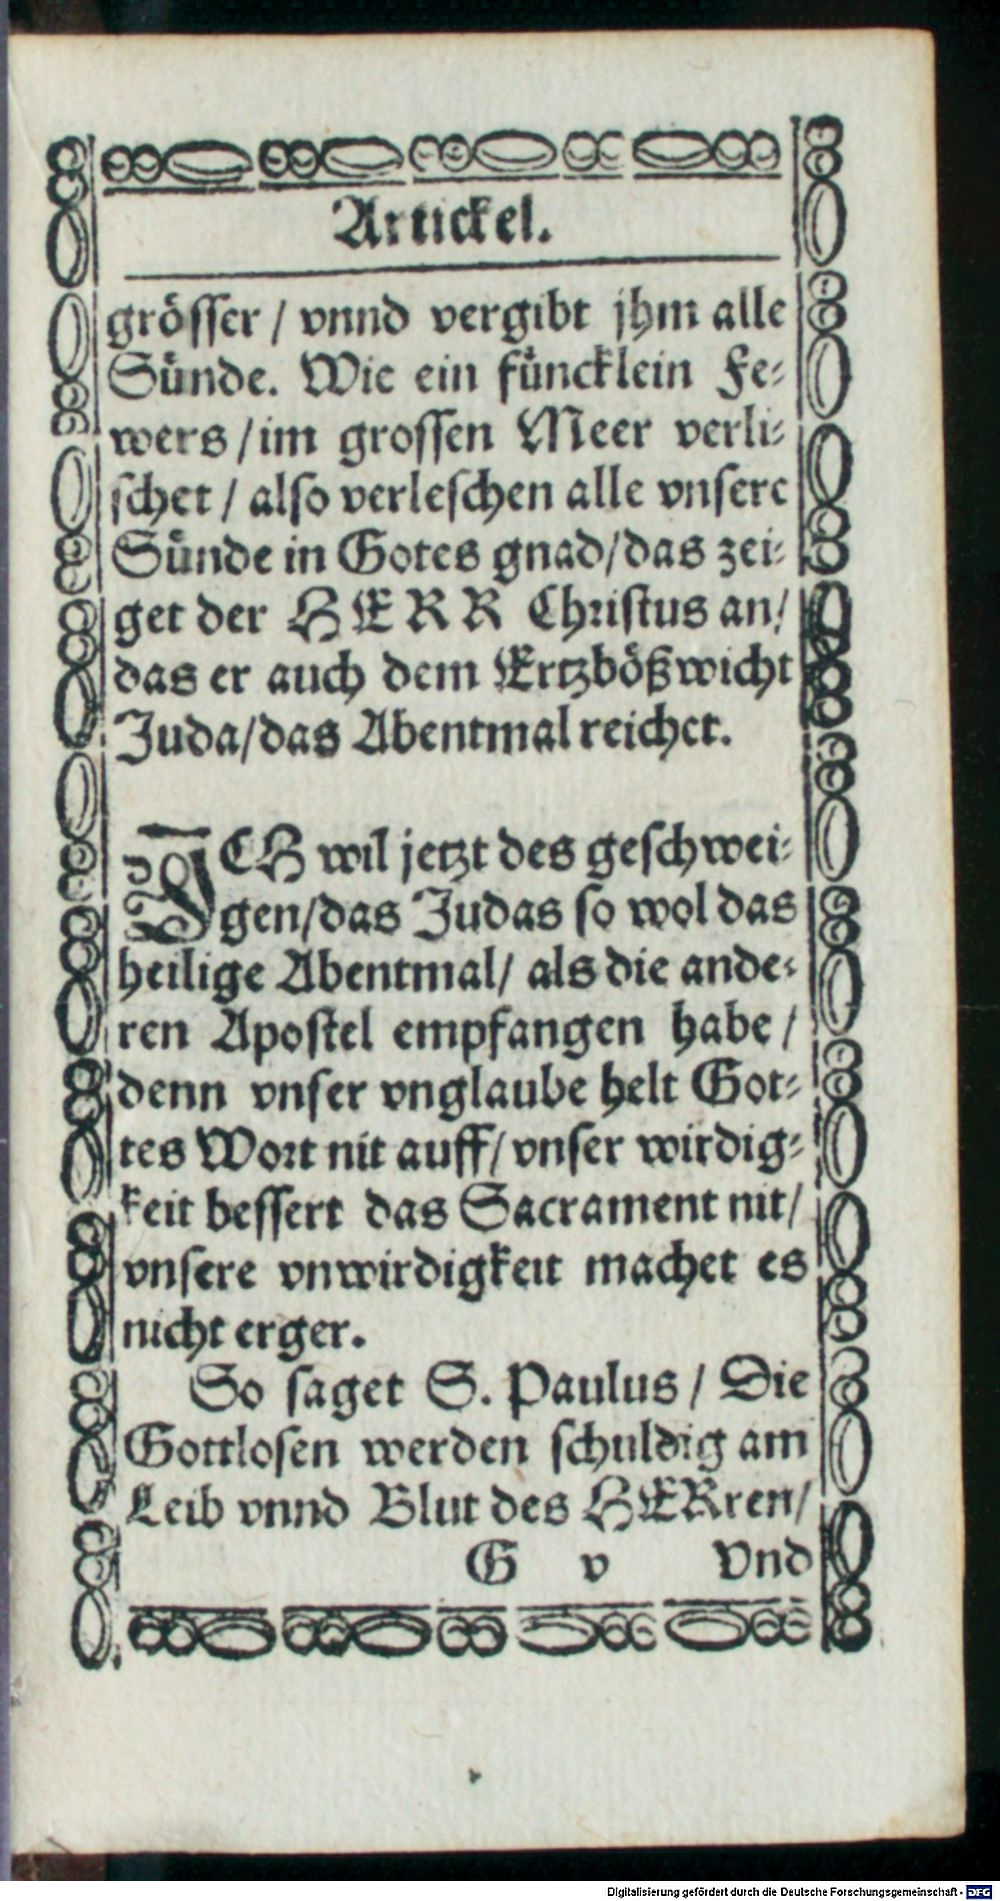 Artickel.
grösser / vnnd vergibt jhm alle
Sünde. Wie ein füncklein Fe-
wers / im grossen Meer verli-
schet / also verleschen alle vnsere
Sünde in Gotes gnad / das zei-
get der HERR Christus an /
das er auch dem Ertzbößwicht
Juda / das Abentmal reichet.
ICH wil jetzt des geschwei-
gen / das Judas so wol das
heilige Abentmal / als die ande-
ren Apostel empfangen habe /
denn vnser vnglaube helt Got-
tes Wort nit auff / vnser wirdig-
keit bessert das Sacrament nit /
vnsere vnwirdigkeit machet es
nicht erger.
So saget S. Paulus / Die
Gottlosen werden schuldig am
Leib vnnd Blut des HERren /
G v Vnd
Digitalisierung gefördert durch die Deutsche Forschungsgemeinschaft - DFG